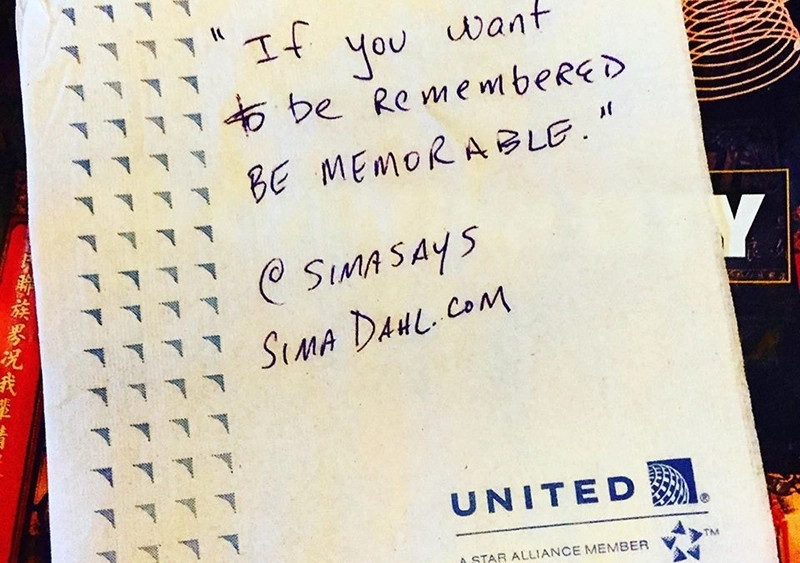 "If you want
to be Remembered
BE MEMORABLE."
@SIMASAYS
SIMA DAHL.COM
UNITED®
A STAR ALLIANCE MEMBER ™
Y
族界況我輩